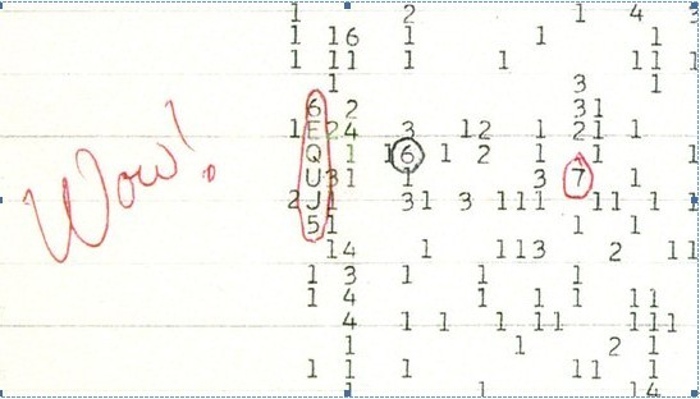 1 2 1 4 3
1 16 1 1 1
1 11 1 1 11 1
1 3 1
6 2 31
1E24 3 12 1 21 1
Wow!
Q 1 16 1 2 1 1 1
U31 1 3 7 1
2J1 31 3 111 11 1 1
51 1 1
14 1 113 2 11
1 3 1 1 1
1 4 1 1 1 11
4 1 1 1 11 111
1 1 2 1
1 1 1 11 1
1 1 14